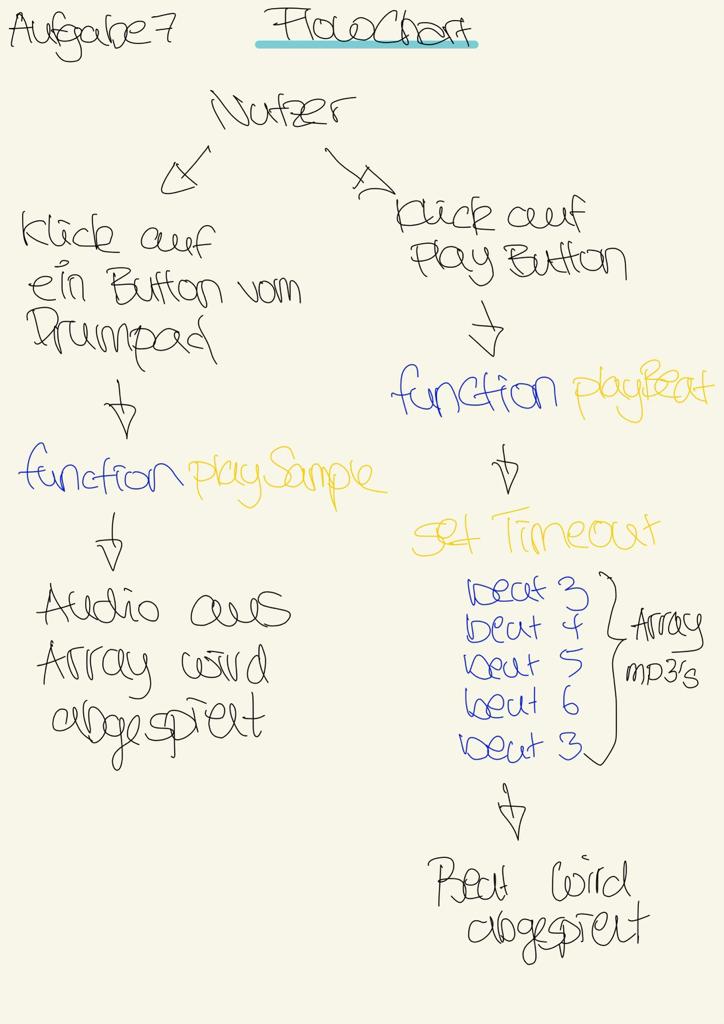 Aufgabe 7
FlowChart
Nutzer
Klick auf
ein Button vom
Drumpad
function playSample
Audio aus
Array wird
abgespielt
klick auf
Play Button
function playBeat
set Timeout
beat 3
beat 4
beat 5
beat 6
beat 3
Array
mp3's
Beat wird
abgespielt